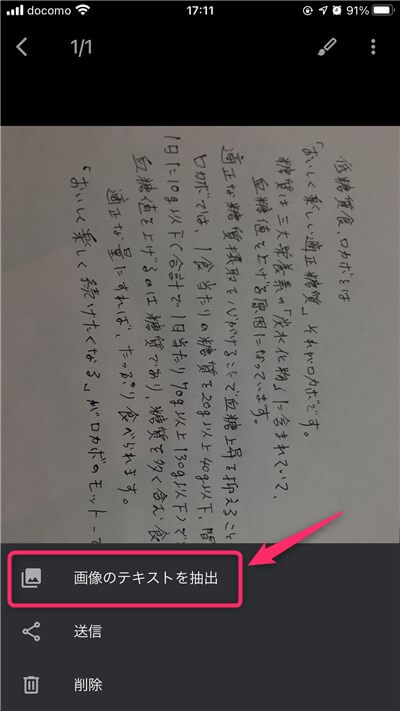 docomo
17:11
91%
1/1
低糖質食、ロカボとは
「おいしく楽しい適正糖質」それがロカボです。
糖質は三大栄養素の「炭水化物」に含まれていて、
血糖値を上げる原因になっています。
適正な糖質摂取を心がけることで血糖上昇を抑えること
ロカボでは、1食当たりの糖質を20g以上40g以下、間
1日に10g以下(合計で1日当たり70g以上130g以下)で
血糖値を上げるのは糖質であり、糖質を多く含む食
適正な量にすれば、たっぷり食べられます。
「おいしく楽しく続けたくなる」がロカボのモットーで
画像のテキストを抽出
送信
削除